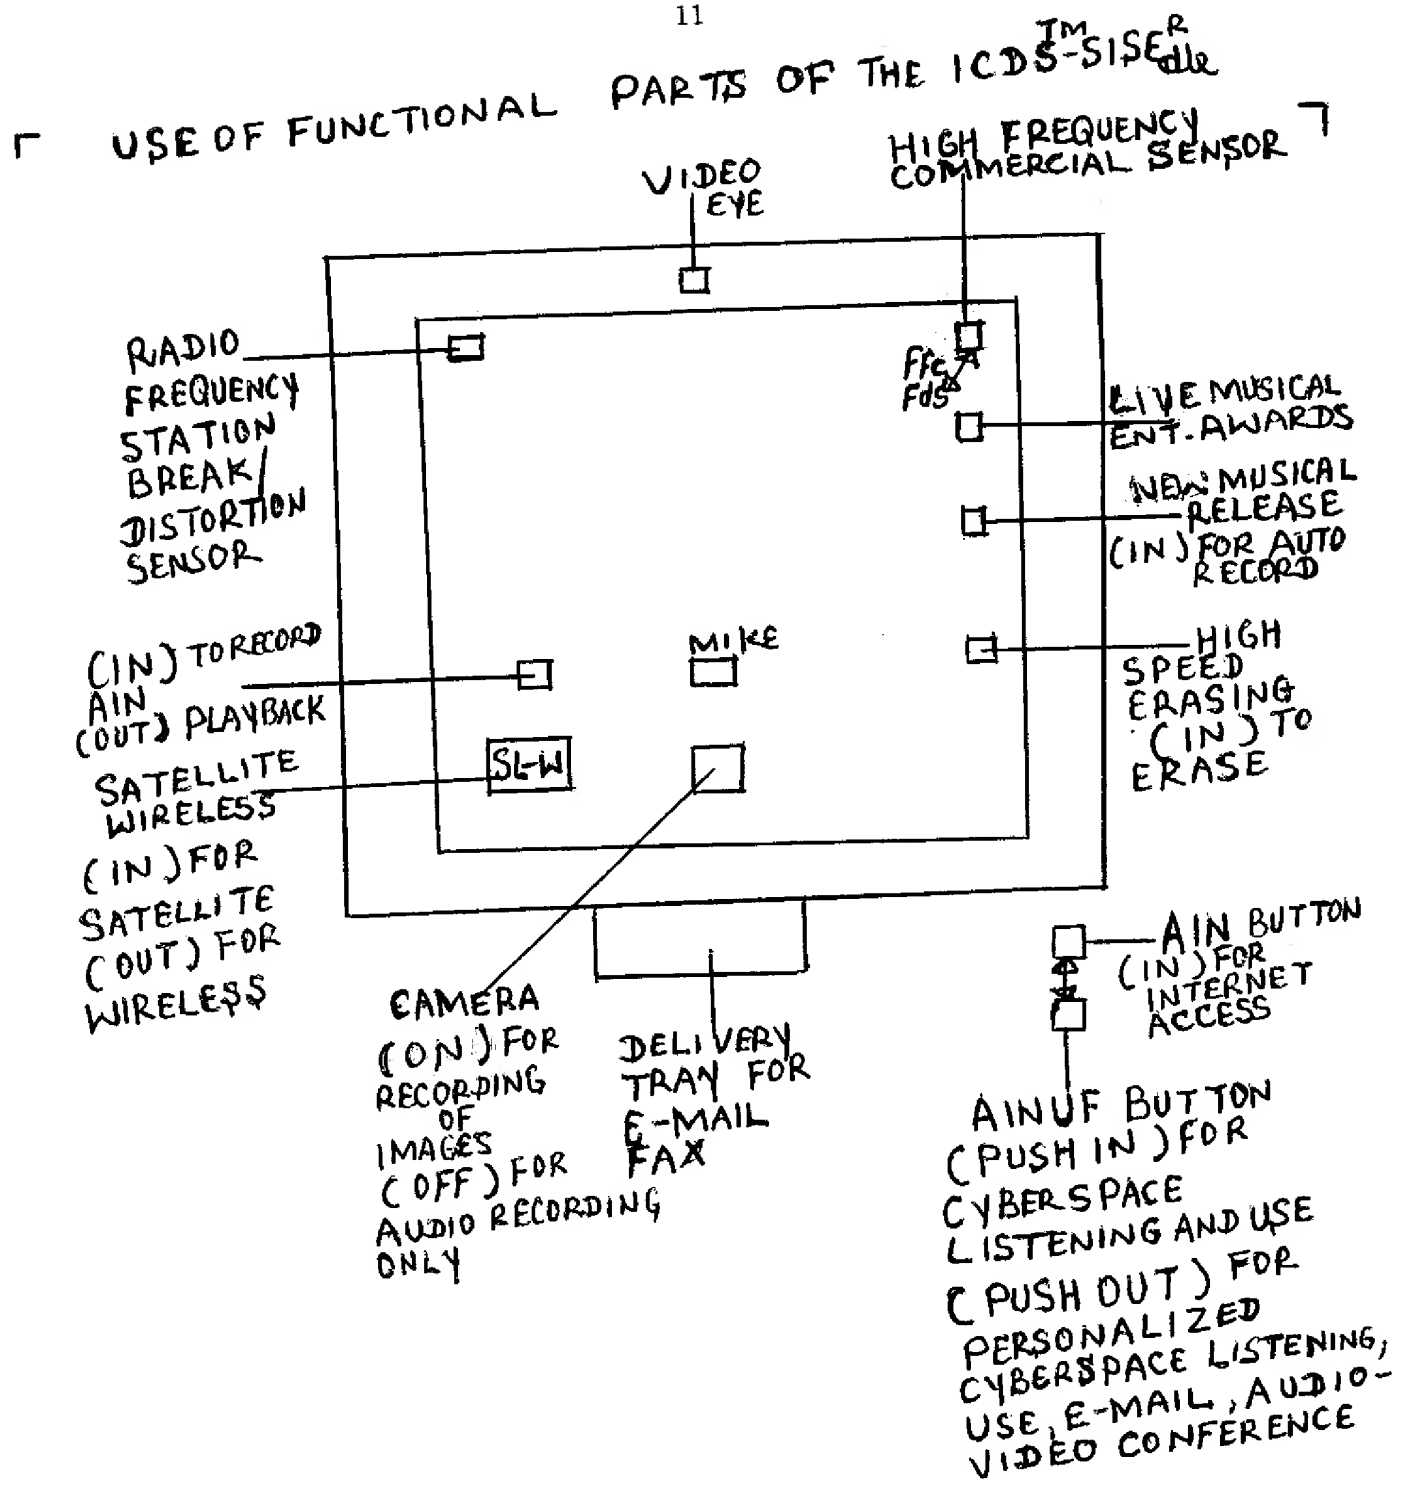 11
USE OF FUNCTIONAL PARTS OF THE ICDS™-SISE^R
HIGH FREQUENCY
COMMERCIAL SENSOR
VIDEO
EYE
RADIO
FREQUENCY
STATION
BREAK/
DISTORTION
SENSOR
Ffc
Fds
LIVE MUSICAL
ENT. AWARDS
NEW MUSICAL
RELEASE
(IN) FOR AUTO
RECORD
(IN) TO RECORD
AIN
(OUT) PLAYBACK
MIKE
HIGH
SPEED
ERASING
(IN) TO
ERASE
SATELLITE
WIRELESS
(IN) FOR
SATELLITE
(OUT) FOR
WIRELESS
SL-W
CAMERA
(ON) FOR
RECORDING
OF
IMAGES
(OFF) FOR
AUDIO RECORDING
ONLY
DELIVERY
TRAY FOR
E-MAIL
FAX
AIN BUTTON
(IN) FOR
INTERNET
ACCESS
AINUF BUTTON
(PUSH IN) FOR
CYBERSPACE
LISTENING AND USE
(PUSH OUT) FOR
PERSONALIZED
CYBERSPACE LISTENING,
USE, E-MAIL, AUDIO-
VIDEO CONFERENCE